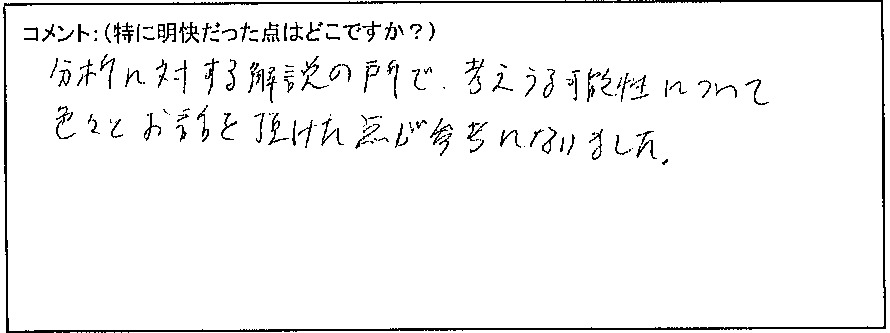 コメント:(特に明快だった点はどこですか?)
分析に対する解説の所で、考えうる可能性について
色々とお話を頂けた点が参考になりました。